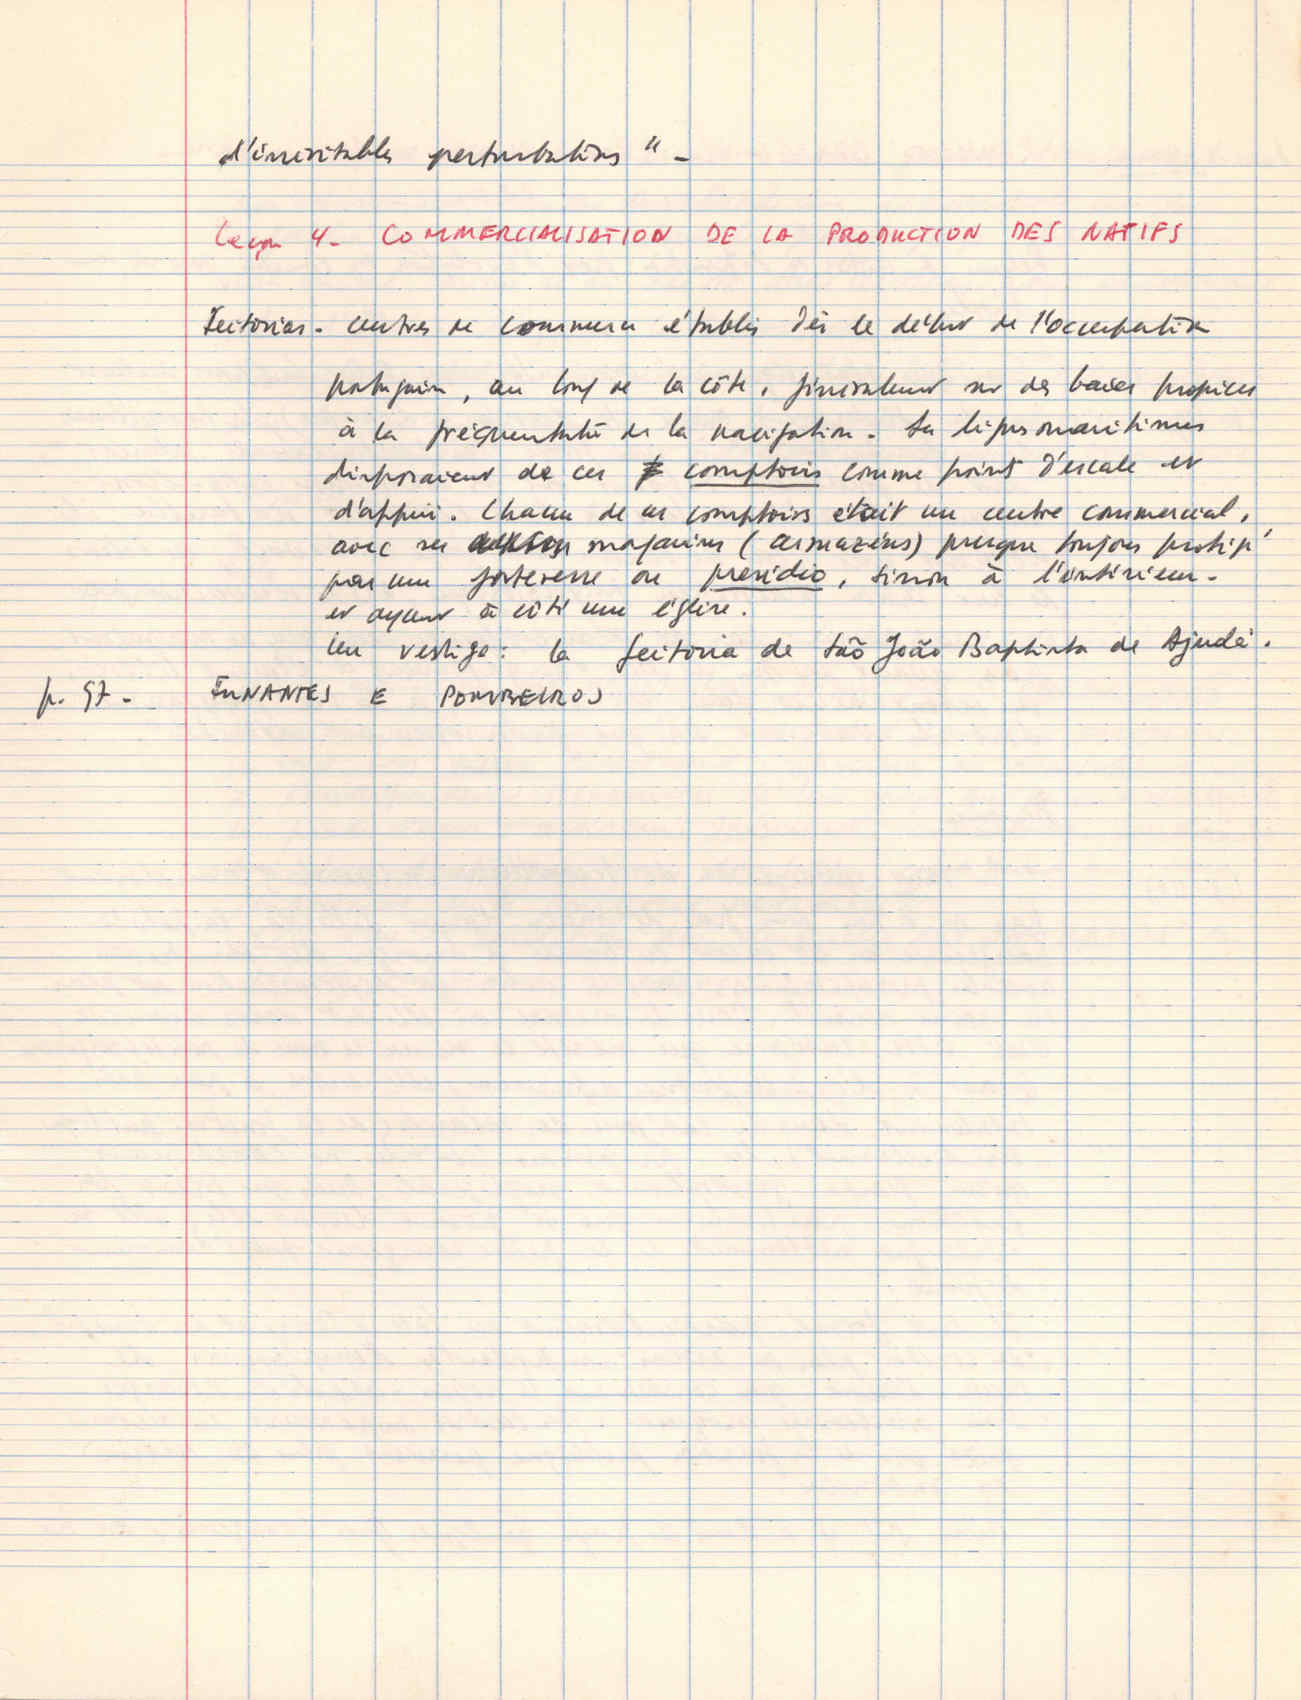 d'inévitables perturbations " -
Leçon 4 - COMMERCIALISATION DE LA PRODUCTION DES NATIFS
Feitorias - centres de commerce établis dès le début de l'occupation
portugaise, au long de la côte, généralement sur des baies propices
à la fréquentation de la navigation. Les lignes maritimes
disposaient de ces comptoirs comme point d'escale et
d'appui. Chacun de ces comptoirs était un centre commercial,
avec ses magasins (armazéns) presque toujours protégé
par une forteresse ou presidio, sinon à l'intérieur -
et ayant à côté une église.
Un vestige : la feitoria de São João Baptista de Ajudá.
p. 97 - FUNANTES E POMBEIROS